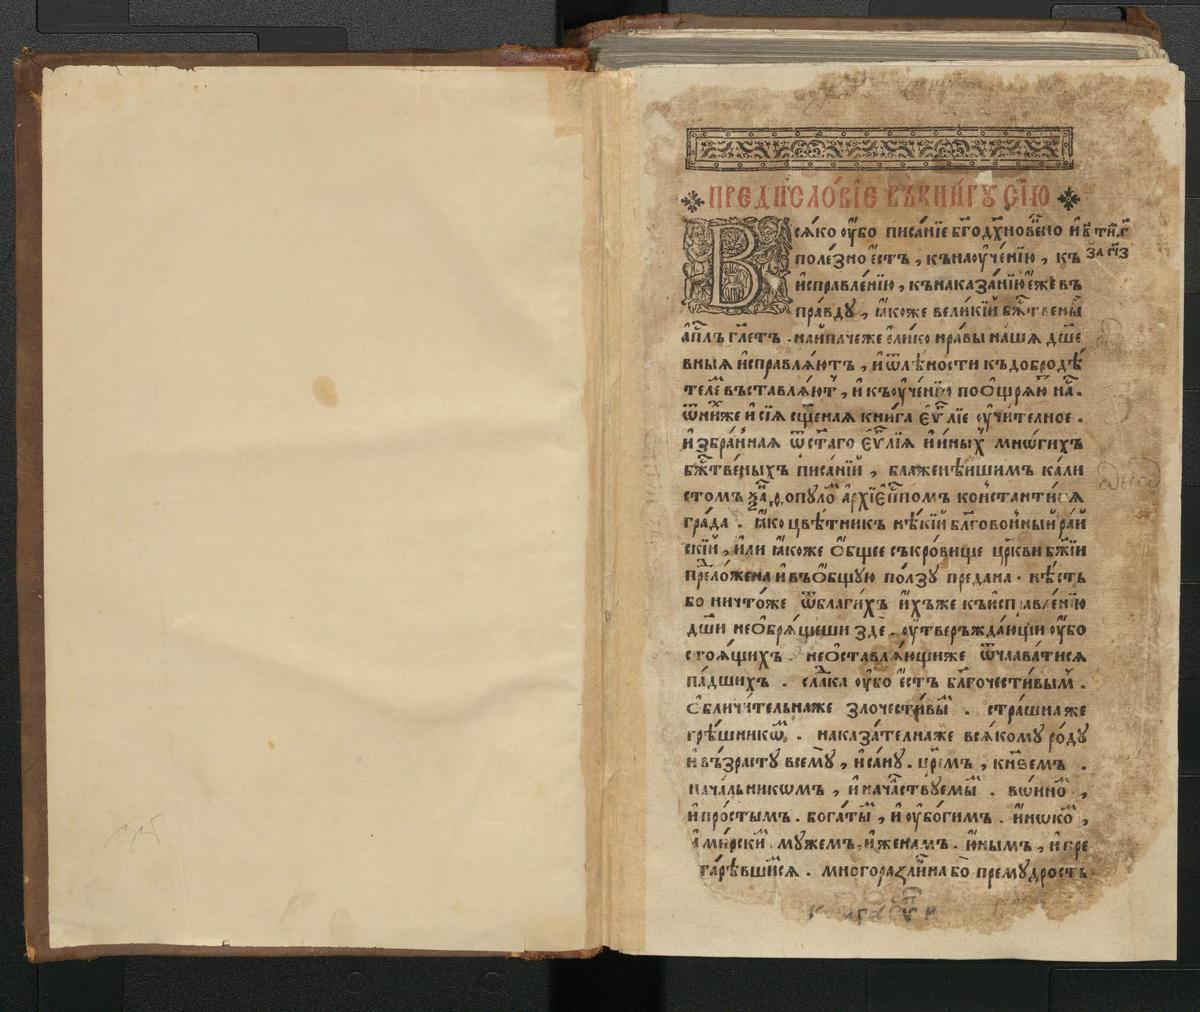 ПРЕДИСЛО́ВІЕ ВЪ КНИ́ГУ СІ́Ю
Вся́ко ᲂу҆́бо писа́нїе бг҃одꙋхнове́но и҆
поле́зно є҆́стъ , къ наᲂуче́нїю , къ
и҆справле́нїю , къ наказа́нїю є҆́же въ
пра́вдꙋ , ꙗ҆́коже вели́кїй бжⷭ҇твены
а҆пⷭ҇лъ гл҃етъ . наипаче же є҆ли́ко нра́вы на́шѧ дш҃е
вныѧ и҆справлѧ́ютъ , и҆ ѿ лѣ́ности къ доброде́
теле въставлѧ́ютъ , и҆ къ ᲂу҆че́нїю поѻщрѧ́ю на .
ѿ ни́хже и҆ сїѧ̀ сщ҃е́наѧ кни́га є҆ѵⷢ҇лїе ᲂу҆чи́телное .
и҆збра́ннаѧ ѿ ст҃а́го є҆ѵⷢ҇лїѧ и҆ и҆ны́хъ мнѡ́гихъ
бжⷭ҇тве́ныхъ писа́нїй , блаже́нѣишимъ ка́ли
стомъ а҆рхїєпⷭ҇помъ конъстанти́нѧ
гра́да . ꙗ҆́ко цвѣ́тникъ нѣ́кїй блг҃ово́нный ра́й
скїй , и҆лѝ ꙗ҆́коже ѻ҆́бщее съкро́вище цр҃кви бж҃їи
прело́жена и҆ въ ѻ҆́бщꙋю по́лзꙋ предана . нѣ́сть
бо ничто́же ѿ благи́хъ и҆́хъже къ и҆справле́нїю
дш҃и не ѻ҆брѧ́щеши здѐ . ᲂу҆твержда́ющїи ᲂу҆́бо
стоѧ́щихъ . не ѻ҆ставлѧ́ющиже ѿчаава́тисѧ
па́дшихъ . сла́дка ᲂу҆́бо є҆́стъ бл҃гочести́вым .
ѻ҆бличи́тельнаже злочести́вы . стра́шна же
грѣ́шникѡ . наказа́телнаже всѧ́комꙋ ро́дꙋ
и҆ въ́зрастꙋ всемꙋ , и҆ са́нꙋ . цр҃е́мъ , кнѕемъ .
нача́льникѡмъ , и҆ нача́лствꙋемы . вѡ́инѡ ,
и҆ про́стымъ . бога́ты , и҆ ᲂу҆бо́гимъ . и҆́нѡкѡ ,
и҆ мирски . мꙋжемъ , и҆ жена́мъ . ю҆́нымъ , и҆ пре
ста́рѣвшиисѧ . многоразли́чна бо премꙋ́дрость